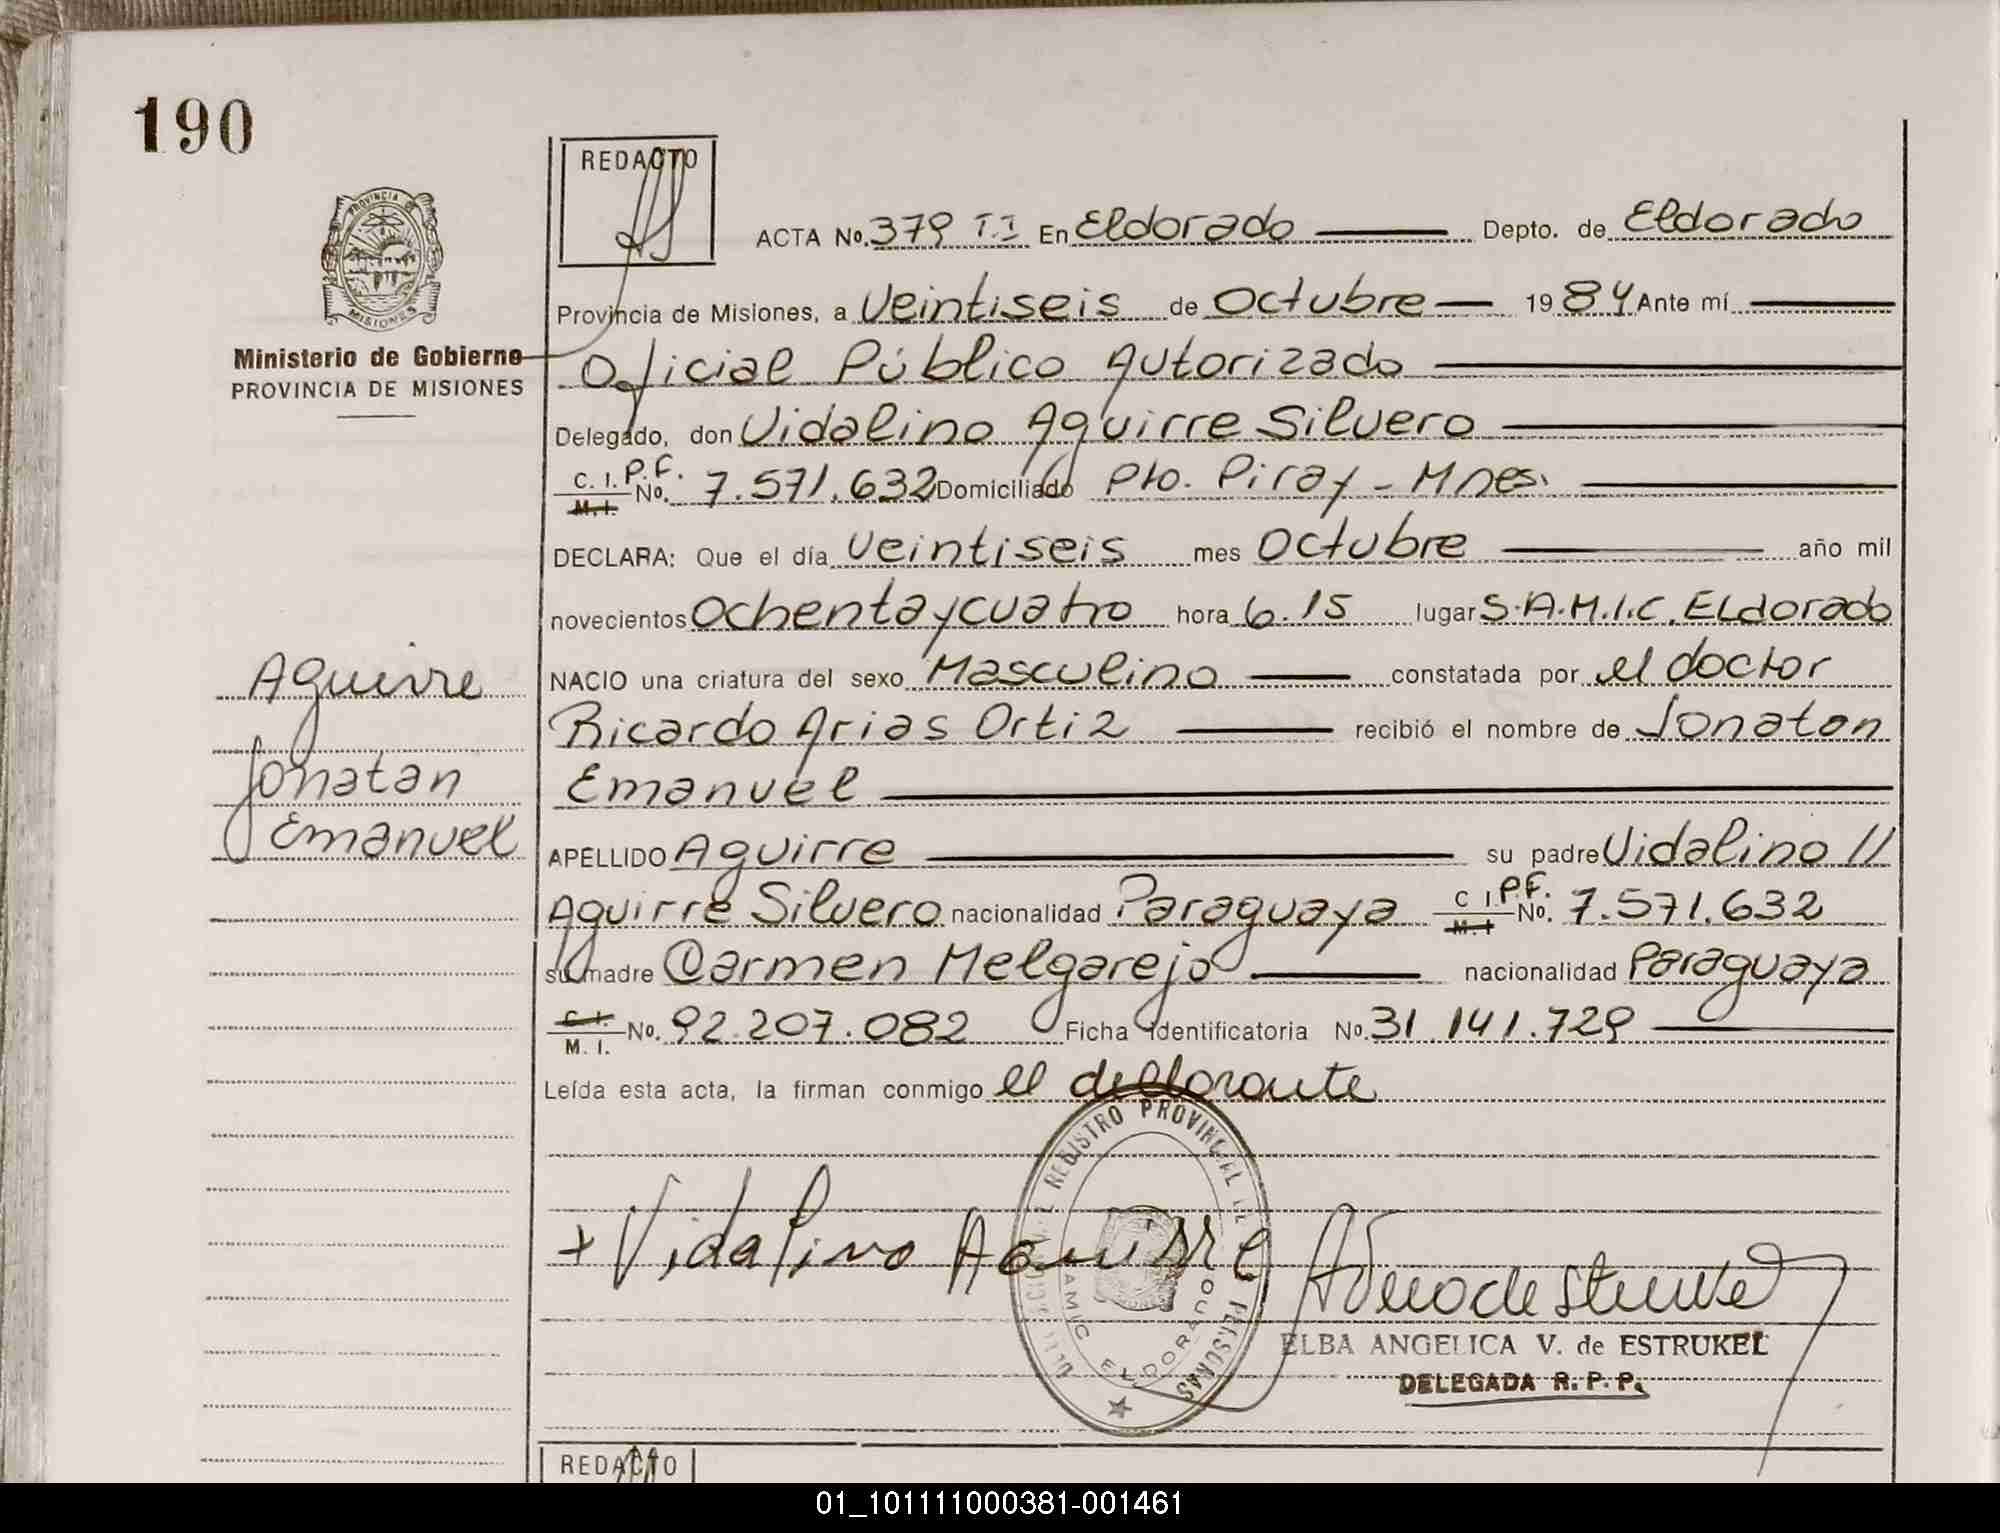 190
REDACTO
ACTA No. 379 T.I En Eldorado Depto. de Eldorado
PROVINCIA DE
MISIONES
Provincia de Misiones, a Veintiseis de Octubre 1984 Ante mí
Ministerio de Gobierno
PROVINCIA DE MISIONES
Oficial Público Autorizado
Delegado, don Vidalino Aguirre Silvero
C. I. P.F.
M. I. No. 7.571.632 Domiciliado Pto. Piray - Mnes.
DECLARA: Que el día Veintiseis mes Octubre año mil
novecientos Ochenta y cuatro hora 6.15 lugar S.A.M.I.C. Eldorado
NACIO una criatura del sexo Masculino constatada por el doctor
Ricardo Arias Ortiz recibió el nombre de Jonatan
Emanuel
Aguirre
Jonatan
Emanuel
APELLIDO Aguirre su padre Vidalino //
Aguirre Silvero nacionalidad Paraguaya C I. P.F. M. I No. 7.571.632
su madre Carmen Melgarejo nacionalidad Paraguaya
C. I. M. I. No. 92.207.082 Ficha Identificatoria No. 31.141.729
Leída esta acta, la firman conmigo el declarante
REGISTRO PROVINCIAL DE PERSONAS
SAMIC ELDORADO
+ Vidalino Aguirre
ELBA ANGELICA V. de ESTRUKEL
DELEGADA R. P. P.
REDACTO
01_101111000381-001461